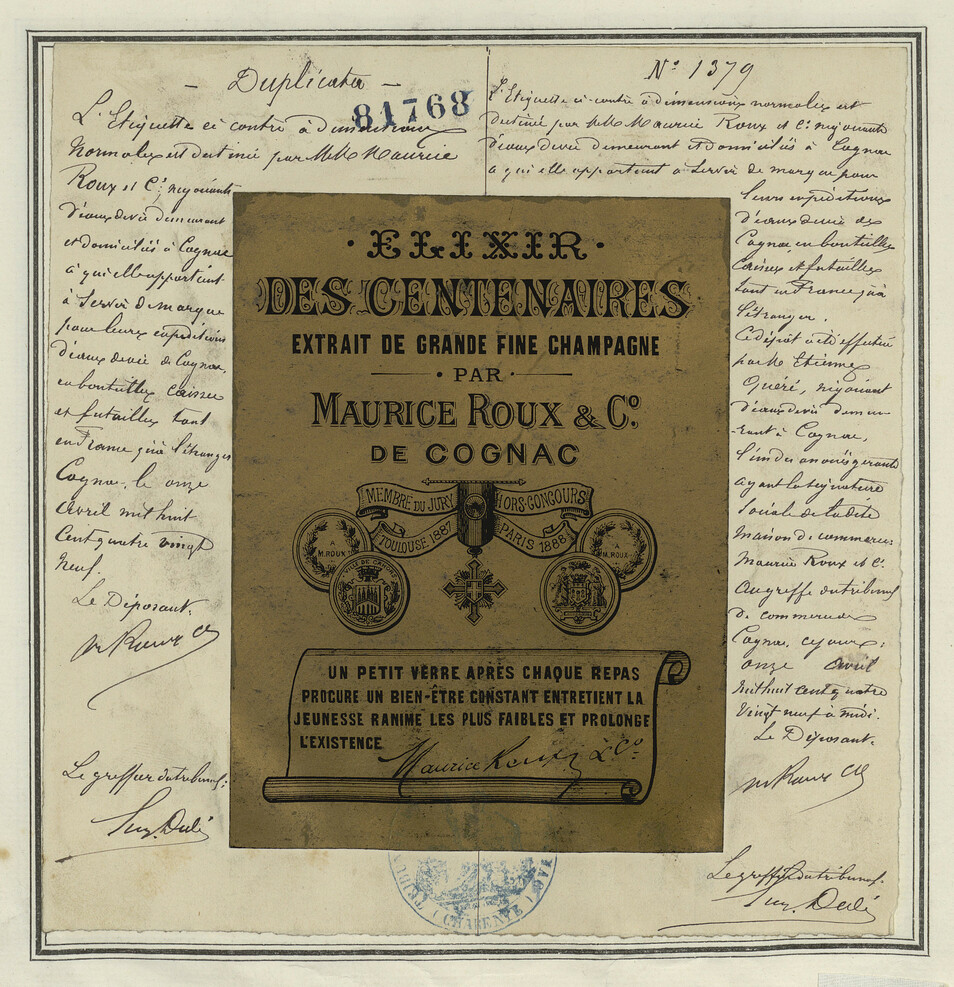 - Duplicata -
81768
L'Etiquette ci contre à dimensions
Normales est destiné par MM. Maurice
Roux et Cie: négociants
d'eaux de vie demeurant
et domiciliés à Cognac
à qui elle appartient
à Servir de marque
pour leurs expéditions
d'eaux de vie de Cognac,
en bouteilles caisses
et futailles tant
en France qu'à l'étranger
Cognac, le onze
Avril mil huit
Cent quatre vingt
Neuf.
Le Déposant:
M Roux Cie
Le greffier du tribunal:
No 1379
L'Etiquette ci-contre à dimensions normales est
destiné par MM. Maurice Roux et Cie négociants
d'eaux de vie demeurant et domiciliés à Cognac
a qui elle appartient a Servir de marque pour
leurs expéditions
d'eaux de vie de
Cognac en bouteilles
Caisses et futailles
tant en France qu'à
l'étranger.
Ce dépôt a été effectué
par M. Etienne
Queré, négociant
d'eaux de vie demeu-
-rant à Cognac,
l'un des associés gérants
ayant la signature
Sociale de la dite
Maison de commerce:
Maurice Roux et Cie.
Au greffe du tribunal
de commerce de
Cognac, ce jour:
onze Avril
mil huit cent quatre
Vingt neuf à midi.
Le Déposant.
M Roux Cie
Le greffier du tribunal.
· ELIXIR ·
DES CENTENAIRES
EXTRAIT DE GRANDE FINE CHAMPAGNE
· PAR ·
MAURICE ROUX & Co.
DE COGNAC
MEMBRE DU JURY HORS CONCOURS
TOULOUSE 1887 PARIS 1888
A M. ROUX A M. ROUX
VILLE DE
UN PETIT VERRE APRÈS CHAQUE REPAS
PROCURE UN BIEN-ÊTRE CONSTANT ENTRETIENT LA
JEUNESSE RANIME LES PLUS FAIBLES ET PROLONGE
L'EXISTENCE
Maurice Roux & Co.
(CHARENTE)